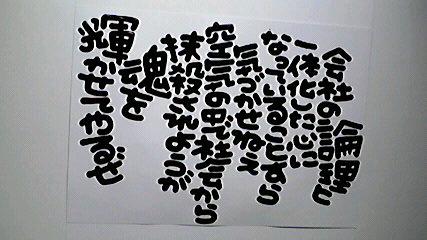 会社の倫理
論理と
一体化した心に
なっていることすら
気づかせねえ
空気の中で社会から
抹殺されようが
魂を
輝かせてやるぜ